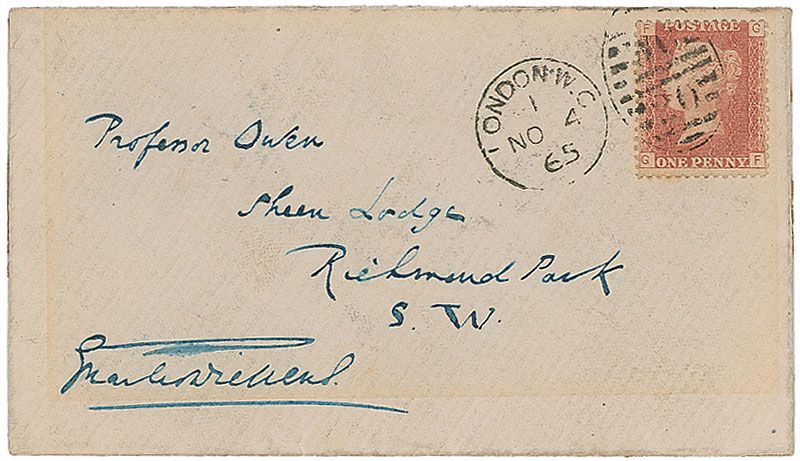 F POSTAGE G
G ONE PENNY F
LONDON·W.C
1
NO 4
65
Professor Owen
Sheen Lodge
Richmond Park
S. W.
Charles Dickens.